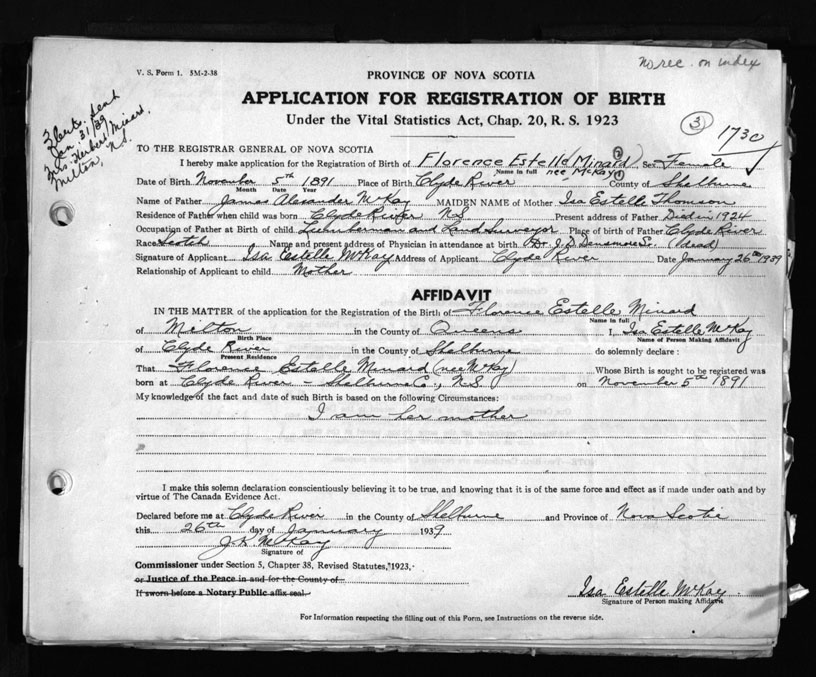 No rec. on index
V. S. Form 1. 5M-2-38
PROVINCE OF NOVA SCOTIA
APPLICATION FOR REGISTRATION OF BIRTH
Under the Vital Statistics Act, Chap. 20, R. S. 1923
3 1730
sent
Jan. 31/39
Mrs. Herbert Minard
Milton, N.S.
TO THE REGISTRAR GENERAL OF NOVA SCOTIA
I hereby make application for the Registration of Birth of Florence Estelle (Minard) Sex Female
Name in full nee McKay
Date of Birth November 5th 1891 Place of Birth Clyde River County of Shelburne
Month Date Year
Name of Father James Alexander McKay MAIDEN NAME of Mother Isa Estelle Thomson
Residence of Father when child was born Clyde River N.S. Present address of Father Died in 1924
Occupation of Father at Birth of child Lumberman and Land Surveyor Place of birth of Father Clyde River
Race Scotch Name and present address of Physician in attendance at birth Dr. J. D. Densmore Sr. (dead)
Signature of Applicant Isa Estelle McKay Address of Applicant Clyde River Date January 26th 1939
Relationship of Applicant to child Mother
AFFIDAVIT
IN THE MATTER of the application for the Registration of the Birth of Florence Estelle Minard
Name in full
of Milton in the County of Queens I, Isa Estelle McKay
Birth Place Name of Person Making Affidavit
of Clyde River in the County of Shelburne do solemnly declare :
Present Residence
That Florence Estelle Minard (nee McKay) Whose Birth is sought to be registered was
born at Clyde River - Shelburne Co., N.S. on November 5th 1891
My knowledge of the fact and date of such Birth is based on the following Circumstances:
I am her mother
I make this solemn declaration conscientiously believing it to be true, and knowing that it is of the same force and effect as if made under oath and by
virtue of The Canada Evidence Act.
Declared before me at Clyde River in the County of Shelburne and Province of Nova Scotia
this 26th day of January 1939
J. K. McKay
Signature of
Commissioner under Section 5, Chapter 38, Revised Statutes, 1923,
or Justice of the Peace in and for the County of
If sworn before a Notary Public affix seal.
Isa Estelle McKay
Signature of Person making Affidavit
For Information respecting the filling out of this Form, see Instructions on the reverse side.